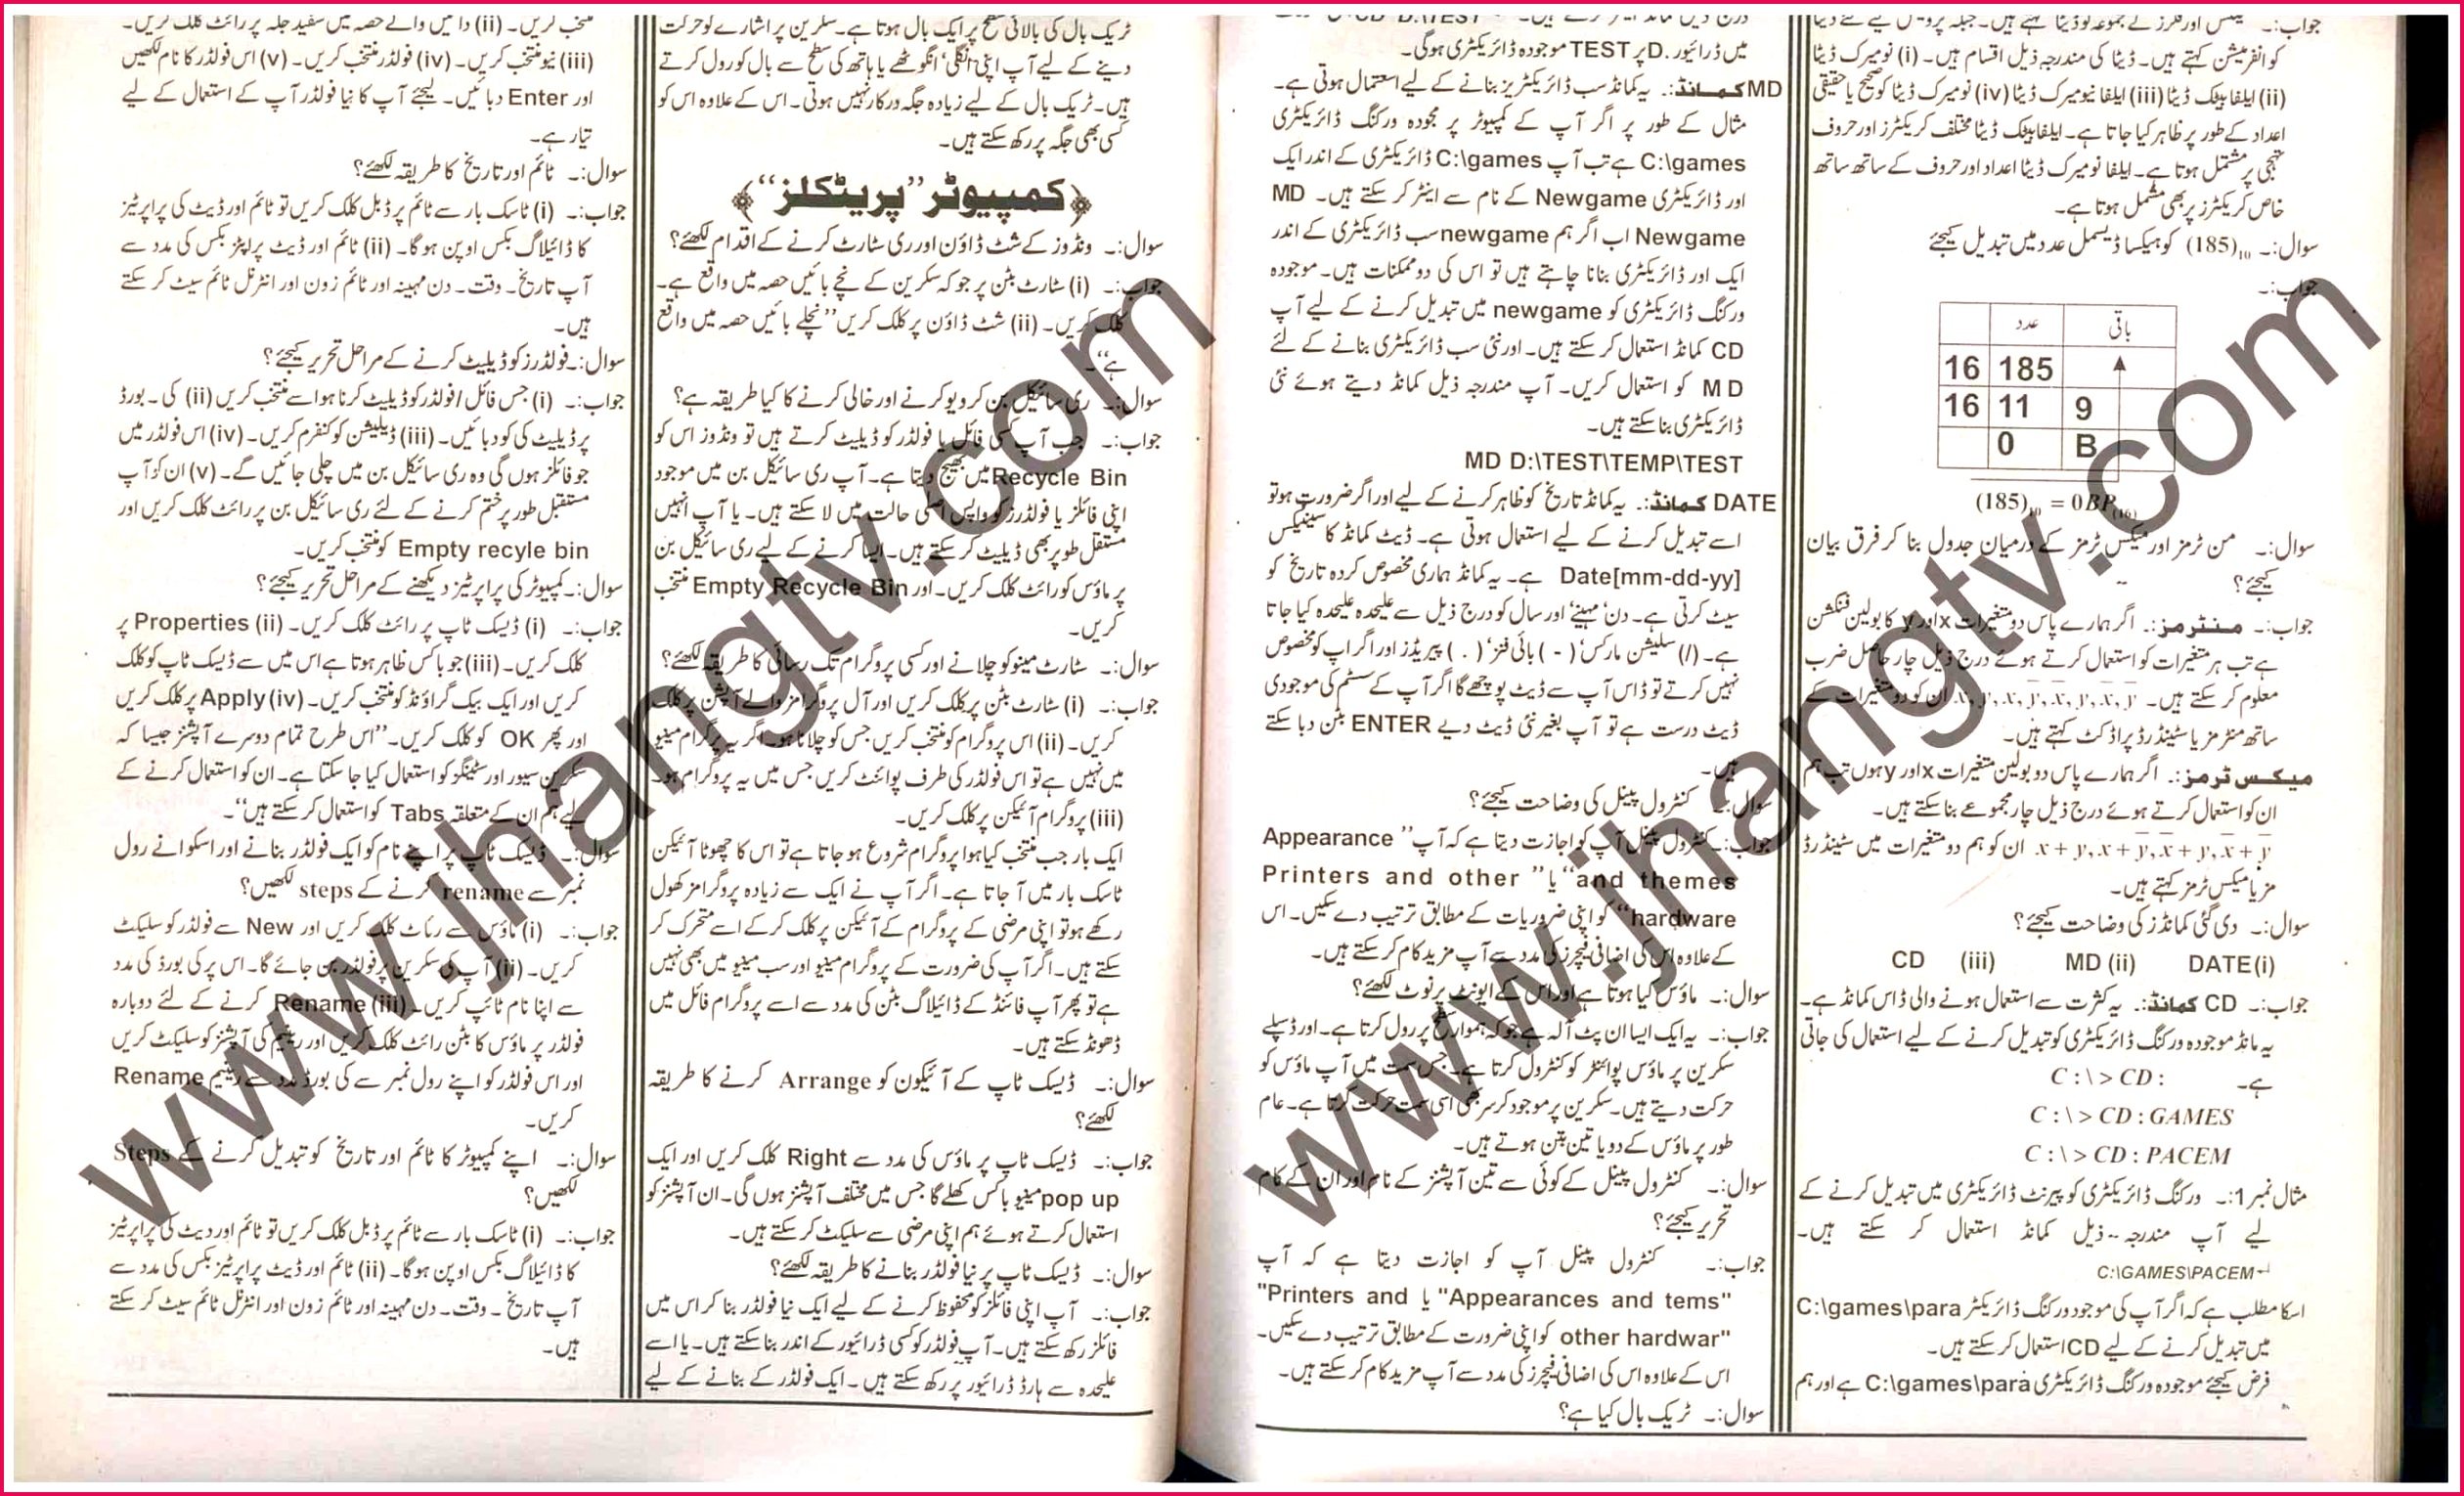 جواب:۔
کو انفرمیشن کہتے ہیں۔ ڈیٹا کی مندرجہ ذیل اقسام ہیں۔ (i) نومیرک ڈیٹا
(ii) ایلفابیٹک ڈیٹا (iii) ایلفا نیومیرک ڈیٹا (iv) نومیرک ڈیٹا کو صحیح یا حقیقی
اعداد کے طور پر ظاہر کیا جاتا ہے۔ ایلفابیٹک ڈیٹا مختلف کریکٹرز اور حروف
تہجی پر مشتمل ہوتا ہے۔ ایلفا نومیرک ڈیٹا اعداد اور حروف کے ساتھ ساتھ
خاص کریکٹرز پر بھی مشتمل ہوتا ہے۔
سوال:۔ (185)₁₀ کو ہیکسا ڈیسمل عدد میں تبدیل کیجئے
جواب:۔
عدد باقی
16 185
16 11 9
0 B
سوال:۔ من ٹرمز اور میکس ٹرمز کے درمیان جدول بنا کر فرق بیان
کیجئے؟
جواب:۔ منٹرمز:۔ اگر ہمارے پاس دو متغیرات x اور y کا بولین فنکشن
ہے تب ہر متغیرات کو استعمال کرتے ہوئے درج ذیل چار حاصل ضرب
معلوم کر سکتے ہیں۔ ان کو دو متغیرات کے
ساتھ منٹرمز یا سٹینڈرڈ پراڈکٹ کہتے ہیں۔
میکس ٹرمز:۔ اگر ہمارے پاس دو بولین متغیرات x اور y ہوں تب ہم
ان کو استعمال کرتے ہوئے درج ذیل چار مجموعے بنا سکتے ہیں۔
x + y, x + ȳ, x̄ + y, x̄ + ȳ ان کو ہم دو متغیرات میں سٹینڈرڈ
مز یا میکس ٹرمز کہتے ہیں۔
سوال:۔ دی گئی کمانڈز کی وضاحت کیجئے؟
DATE (i) MD (ii) CD (iii)
جواب:۔ CD کمانڈ:۔ یہ کثرت سے استعمال ہونے والی ڈاس کمانڈ ہے۔
یہ مانڈ موجودہ ورکنگ ڈائریکٹری کو تبدیل کرنے کے لیے استعمال کی جاتی
ہے۔ C:\> CD:
C:\> CD: GAMES
C:\> CD: PACEM
مثال نمبر 1:۔ ورکنگ ڈائریکٹری کو پیرنٹ ڈائریکٹری میں تبدیل کرنے کے
لیے آپ مندرجہ ذیل کمانڈ استعمال کر سکتے ہیں۔
C:\GAMES\PACEM↵
اسکا مطلب ہے کہ اگر آپ کی موجود ورکنگ ڈائریکٹر C:\games\para
میں تبدیل کرنے کے لیے CD استعمال کر سکتے ہیں۔
فرض کیجئے موجودہ ورکنگ ڈائریکٹری C:\games\para ہے اور ہم
میں ڈرائیور D. پر TEST موجودہ ڈائریکٹری ہوگی۔
MD کمانڈ:۔ یہ کمانڈ سب ڈائریکٹریز بنانے کے لیے استعمال ہوتی ہے۔
مثال کے طور پر اگر آپ کے کمپیوٹر پر مجودہ ورکنگ ڈائریکٹری
C:\games ہے تب آپ C:\games ڈائریکٹری کے اندر ایک
اور ڈائریکٹری Newgame کے نام سے اینٹر کر سکتے ہیں۔ MD
Newgame اب اگر ہم newgame سب ڈائریکٹری کے اندر
ایک اور ڈائریکٹری بنانا چاہتے ہیں تو اس کی دو ممکنات ہیں۔ موجودہ
ورکنگ ڈائریکٹری کو newgame میں تبدیل کرنے کے لیے آپ
CD کمانڈ استعمال کر سکتے ہیں۔ اور نئی سب ڈائریکٹری بنانے کے لئے
MD کو استعمال کریں۔ آپ مندرجہ ذیل کمانڈ دیتے ہوئے نئی
ڈائریکٹری بنا سکتے ہیں۔
MD D:\TEST\TEMP\TEST
DATE کمانڈ:۔ یہ کمانڈ تاریخ کو ظاہر کرنے کے لیے اور اگر ضرورت ہو تو
اسے تبدیل کرنے کے لیے استعمال ہوتی ہے۔ ڈیٹ کمانڈ کا سینٹیکس
Date[mm-dd-yy] ہے۔ یہ کمانڈ ہماری مخصوص کردہ تاریخ کو
سیٹ کرتی ہے۔ دن، مہینے اور سال کو درج ذیل سے علیحدہ علیحدہ کیا جاتا
ہے۔ (/) سلیش مارکس، ( - ) ہائی فنز، ( . ) پیریڈز اور اگر اپ کو مخصوص
نہیں کرتے تو ڈاس آپ سے ڈیٹ پوچھے گا اگر آپ کے سسٹم کی موجودی
ڈیٹ درست ہے تو آپ بغیر نئی ڈیٹ دیے ENTER بٹن دبا سکتے
ہیں۔
سوال:۔ کنٹرول پینل کی وضاحت کیجئے؟
جواب:۔ کنٹرول پینل آپ کو اجازت دیتا ہے کہ آپ ’’Appearance
and themes‘‘ یا ’’Printers and other
hardware‘‘ کو اپنی ضروریات کے مطابق ترتیب دے سکیں۔ اس
کے علاوہ اس کی اضافی فیچرز کی مدد سے آپ مزید کام کر سکتے ہیں۔
سوال:۔ ماؤس کیا ہوتا ہے اور اس کے ایونٹ پر نوٹ لکھئے؟
جواب:۔ یہ ایک ایسا ان پٹ آلہ ہے جو کہ ہموار سطح پر رول کرتا ہے۔ اور ڈسپلے
سکرین پر ماؤس پوائنٹر کو کنٹرول کرتا ہے۔ جس سمت میں آپ ماؤس کو
حرکت دیتے ہیں۔ سکرین پر موجود کرسر بھی اسی سمت حرکت کرتا ہے۔ عام
طور پر ماؤس کے دو یا تین بٹن ہوتے ہیں۔
سوال:۔ کنٹرول پینل کے کوئی سے تین آپشنز کے نام اور ان کے کام
تحریر کیجئے؟
جواب:۔ کنٹرول پینل آپ کو اجازت دیتا ہے کہ آپ
"Appearances and tems" یا "Printers and
other hardwar" کو اپنی ضرورت کے مطابق ترتیب دے سکیں۔
اس کے علاوہ اس کی اضافی فیچرز کی مدد سے آپ مزید کام کر سکتے ہیں۔
سوال:۔ ٹریک بال کیا ہے؟
ٹریک بال کی بالائی سطح پر ایک بال ہوتا ہے۔ سکرین پر اشارے کو حرکت
دینے کے لیے آپ اپنی انگلی، انگوٹھے یا ہاتھ کی سطح سے بال کو رول کرتے
ہیں۔ ٹریک بال کے لیے زیادہ جگہ درکار نہیں ہوتی۔ اس کے علاوہ اس کو
کسی بھی جگہ پر رکھ سکتے ہیں۔
﴿کمپیوٹر ’’پریٹکلز‘‘﴾
سوال:۔ ونڈوز کے شٹ ڈاؤن اور ری سٹارٹ کرنے کے اقدام لکھئے؟
جواب:۔ (i) سٹارٹ بٹن پر جو کہ سکرین کے نچے بائیں حصہ میں واقع ہے۔
کلک کریں۔ (ii) شٹ ڈاؤن پر کلک کریں ’’نچلے بائیں حصہ میں واقع
ہے‘‘
سوال:۔ ری سائیکل بن کو ویو کرنے اور خالی کرنے کا کیا طریقہ ہے؟
جواب:۔ جب آپ کسی فائل یا فولڈر کو ڈیلیٹ کرتے ہیں تو ونڈوز اس کو
Recycle Bin میں بھیج دیتا ہے۔ آپ ری سائیکل بن میں موجود
اپنی فائلز یا فولڈرز کو واپس اصلی حالت میں لا سکتے ہیں۔ یا آپ انہیں
مستقل طور بھی ڈیلیٹ کر سکتے ہیں۔ ایسا کرنے کے لیے ری سائیکل بن
پر ماؤس کو رائٹ کلک کریں۔ اور Empty Recycle Bin منتخب
کریں۔
سوال:۔ سٹارٹ مینو کو چلانے اور کسی پروگرام تک رسائی کا طریقہ لکھئے؟
جواب:۔ (i) سٹارٹ بٹن پر کلک کریں اور آل پروگرامز والے آپشن پر کلک
کریں۔ (ii) اس پروگرام کو منتخب کریں جس کو چلانا ہو۔ اگر یہ پروگرام مینو
میں نہیں ہے تو اس فولڈر کی طرف پوائنٹ کریں جس میں یہ پروگرام ہو۔
(iii) پروگرام آئیکن پر کلک کریں۔
ایک بار جب منتخب کیا ہوا پروگرام شروع ہو جاتا ہے تو اس کا چھوٹا آئیکن
ٹاسک بار میں آ جاتا ہے۔ اگر آپ نے ایک سے زیادہ پروگرامز کھول
رکھے ہو تو اپنی مرضی کے پروگرام کے آئیکن پر کلک کر کے اسے متحرک کر
سکتے ہیں۔ اگر آپ کی ضرورت کے پروگرام مینو اور سب مینو میں بھی نہیں
ہے تو پھر آپ فائنڈ کے ڈائیلاگ بٹن کی مدد سے اسے پروگرام فائل میں
ڈھونڈ سکتے ہیں۔
سوال:۔ ڈیسک ٹاپ کے آئیکون کو Arrange کرنے کا طریقہ
لکھئے؟
جواب:۔ ڈیسک ٹاپ پر ماؤس کی مدد سے Right کلک کریں اور ایک
pop up مینو باکس کھلے گا جس میں مختلف آپشنز ہوں گی۔ ان آپشنز کو
استعمال کرتے ہوئے ہم اپنی مرضی سے سلیکٹ کر سکتے ہیں۔
سوال:۔ ڈیسک ٹاپ پر نیا فولڈر بنانے کا طریقہ لکھئے؟
جواب:۔ آپ اپنی فائلز کو محفوظ کرنے کے لیے ایک نیا فولڈر بنا کر اس میں
فائلز رکھ سکتے ہیں۔ آپ فولڈر کو کسی ڈرائیور کے اندر بنا سکتے ہیں۔ یا اسے
علیحدہ سے ہارڈ ڈرائیور پر رکھ سکتے ہیں۔ ایک فولڈر کے بنانے کے لیے
منتخب کریں۔ (ii) دائیں والے حصہ میں سفید جگہ پر رائٹ کلک کریں۔
(iii) نیو منتخب کریں۔ (iv) فولڈر منتخب کریں۔ (v) اس فولڈر کا نام لکھیں
اور Enter دبائیں۔ لیجئے آپ کا نیا فولڈر آپ کے استعمال کے لیے
تیار ہے۔
سوال:۔ ٹائم اور تاریخ کا طریقہ لکھئے؟
جواب:۔ (i) ٹاسک بار سے ٹائم پر ڈبل کلک کریں تو ٹائم اور ڈیٹ کی پراپرٹیز
کا ڈائیلاگ بکس اوپن ہو گا۔ (ii) ٹائم اور ڈیٹ پراپٹیز بکس کی مدد سے
آپ تاریخ۔ وقت۔ دن مہینہ اور ٹائم زون اور انٹرنل ٹائم سیٹ کر سکتے
ہیں۔
سوال:۔ فولڈرز کو ڈیلیٹ کرنے کے مراحل تحریر کیجئے؟
جواب:۔ (i) جس فائل/فولڈر کو ڈیلیٹ کرنا ہو اسے منتخب کریں (ii) کی۔ بورڈ
پر ڈیلیٹ کی کو دبائیں۔ (iii) ڈیلیشن کو کنفرم کریں۔ (iv) اس فولڈر میں
جو فائلز ہوں گی وہ ری سائیکل بن میں چلی جائیں گے۔ (v) ان کو آپ
مستقبل طور پر ختم کرنے کے لئے ری سائیکل بن پر رائٹ کلک کریں اور
Empty recyle bin کو منتخب کریں۔
سوال:۔ کمپیوٹر کی پراپرٹیز دیکھنے کے مراحل تحریر کیجئے؟
جواب:۔ (i) ڈیسک ٹاپ پر رائٹ کلک کریں۔ (ii) Properties پر
کلک کریں۔ (iii) جو باکس ظاہر ہوتا ہے اس میں سے ڈیسک ٹاپ کو کلک
کریں اور ایک بیک گراؤنڈ کو منتخب کریں۔ (iv) Apply پر کلک کریں
اور پھر OK کو کلک کریں۔ ’’اس طرح تمام دوسرے آپشنز جیسا کہ
سکرین سیور اور سٹینگز کو استعمال کیا جا سکتا ہے۔ ان کو استعمال کرنے کے
لیے ہم ان کے متعلقہ Tabs کو استعمال کر سکتے ہیں‘‘۔
سوال:۔ ڈیسک ٹاپ پر اپنے نام کو ایک فولڈر بنانے اور اسکو اپنے رول
نمبر سے rename کرنے کے steps لکھیں؟
جواب:۔ (i) ماؤس سے رئاٹ کلک کریں اور New سے فولڈر کو سلیکٹ
کریں۔ (ii) آپ کی سکرین پر فولڈر بن جائے گا۔ اس پر کی بورڈ کی مدد
سے اپنا نام ٹائپ کریں۔ (iii) Rename کرنے کے لئے دوبارہ
فولڈر پر ماؤس کا بٹن رائٹ کلک کریں اور رینیم کی آپشنز کو سلیکٹ کریں
اور اس فولڈر کو اپنے رول نمبر سے کی بورڈ مدد سے رینیم Rename
کریں۔
سوال:۔ اپنے کمپیوٹر کا ٹائم اور تاریخ کو تبدیل کرنے کے Steps
لکھیں؟
جواب:۔ (i) ٹاسک بار سے ٹائم پر ڈبل کلک کریں تو ٹائم اور دیٹ کی پراپرٹیز
کا ڈائیلاگ بکس اوپن ہوگا۔ (ii) ٹائم اور ڈیٹ پراپرٹیز بکس کی مدد سے
آپ تاریخ۔ وقت۔ دن مہینہ اور ٹائم زون اور انٹرنل ٹائم سیٹ کر سکتے
ہیں۔
www.jhangtv.com
www.jhangtv.com